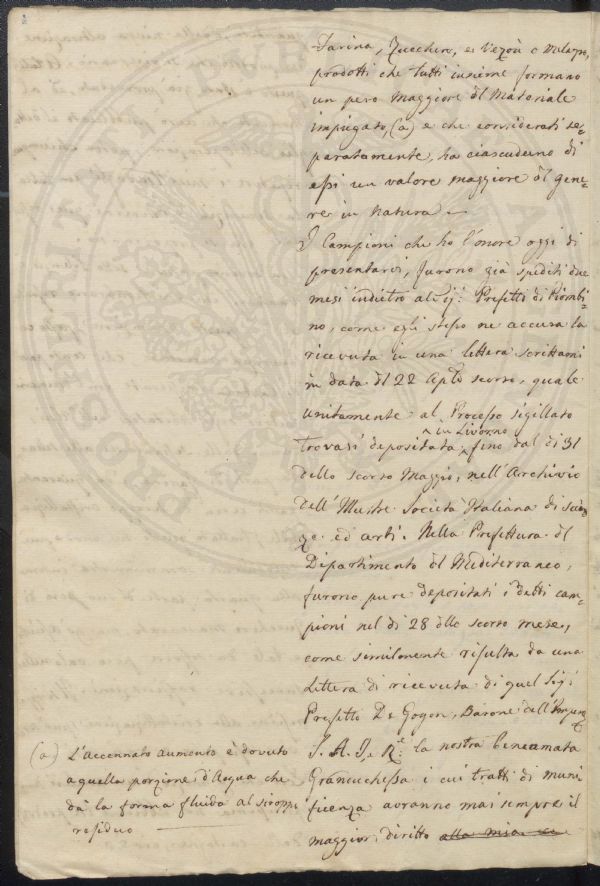 Farina, Zucchero, e
prodotti che tutti insieme formano
un peso maggiore dl Materiale
impiegato, (a) e che considerati se-
paratamente, ha ciascuduno di
essi un valore maggiore dl gene-
re in natura
I Campioni che ho l'onore oggi di
presentarvi, furono già spediti due
mesi indietro al Prefetto di Piombi-
no, come egli stesso ne accusa la
ricevuta in una lettera scrittami
in data dl 22 scorso, quale
unitamente al Processo sigillato
in Livorno
trovasi depositata, fino dal di 31
dello scorso Maggio, nell'Archivio
dell'Illustre Società Italiana di Scien-
ze ed arti. Nella Prefettura dl
Dipartimento dl Mediterraneo,
furono pure depositati i detti cam-
pioni nel di 28 dllo scorso mese,
come similmente risulta da una
Lettera di ricevuta di quel Sigr
Prefetto De Goyon, Barone dell'
S. A. I. e R. la nostra beneamata
Granduchessa i cui tratti di muni
ficenza avranno mai sempre il
maggior diritto alla mia
(a) L'accennato aumento è dovuto
a quella porzione d'Acqua che
dà la forma fluida al siroppo
residuo